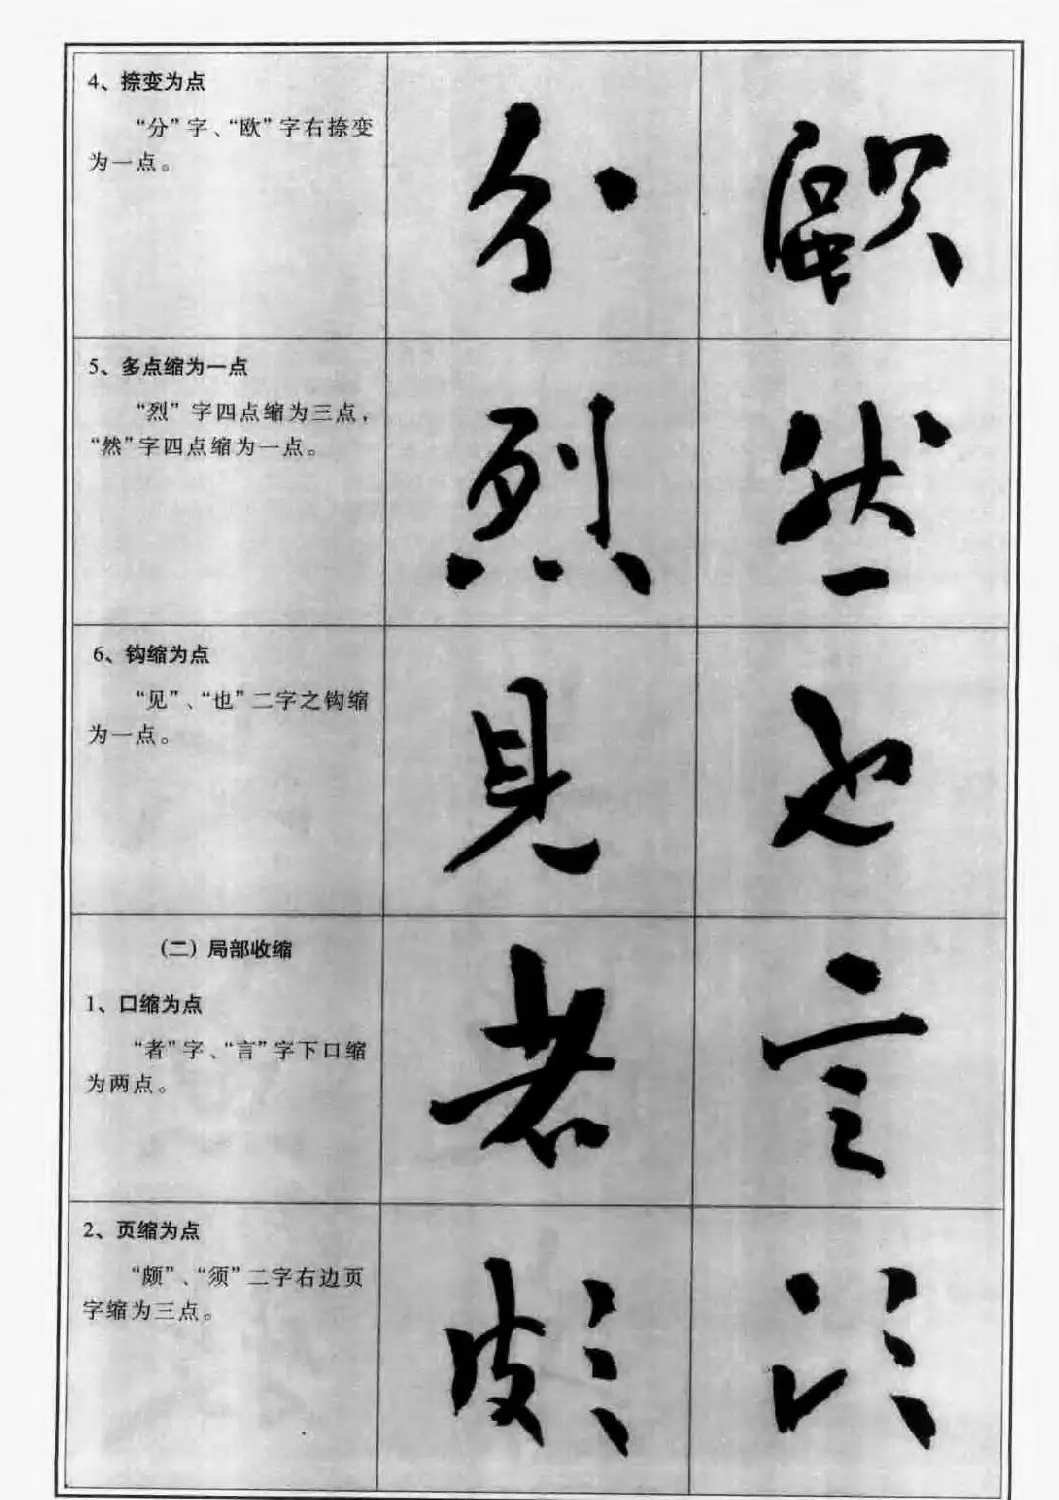 4、捺变为点
“分”字、“欧”字右捺变
为一点。
分 歐
5、多点缩为一点
“烈”字四点缩为三点，
“然”字四点缩为一点。
烈 然
6、钩缩为点
“见”、“也”二字之钩缩
为一点。
見 也
（二）局部收缩
1、口缩为点
“者”字、“言”字下口缩
为两点。
者 言
2、页缩为点
“颇”、“须”二字右边页
字缩为三点。
頗 須